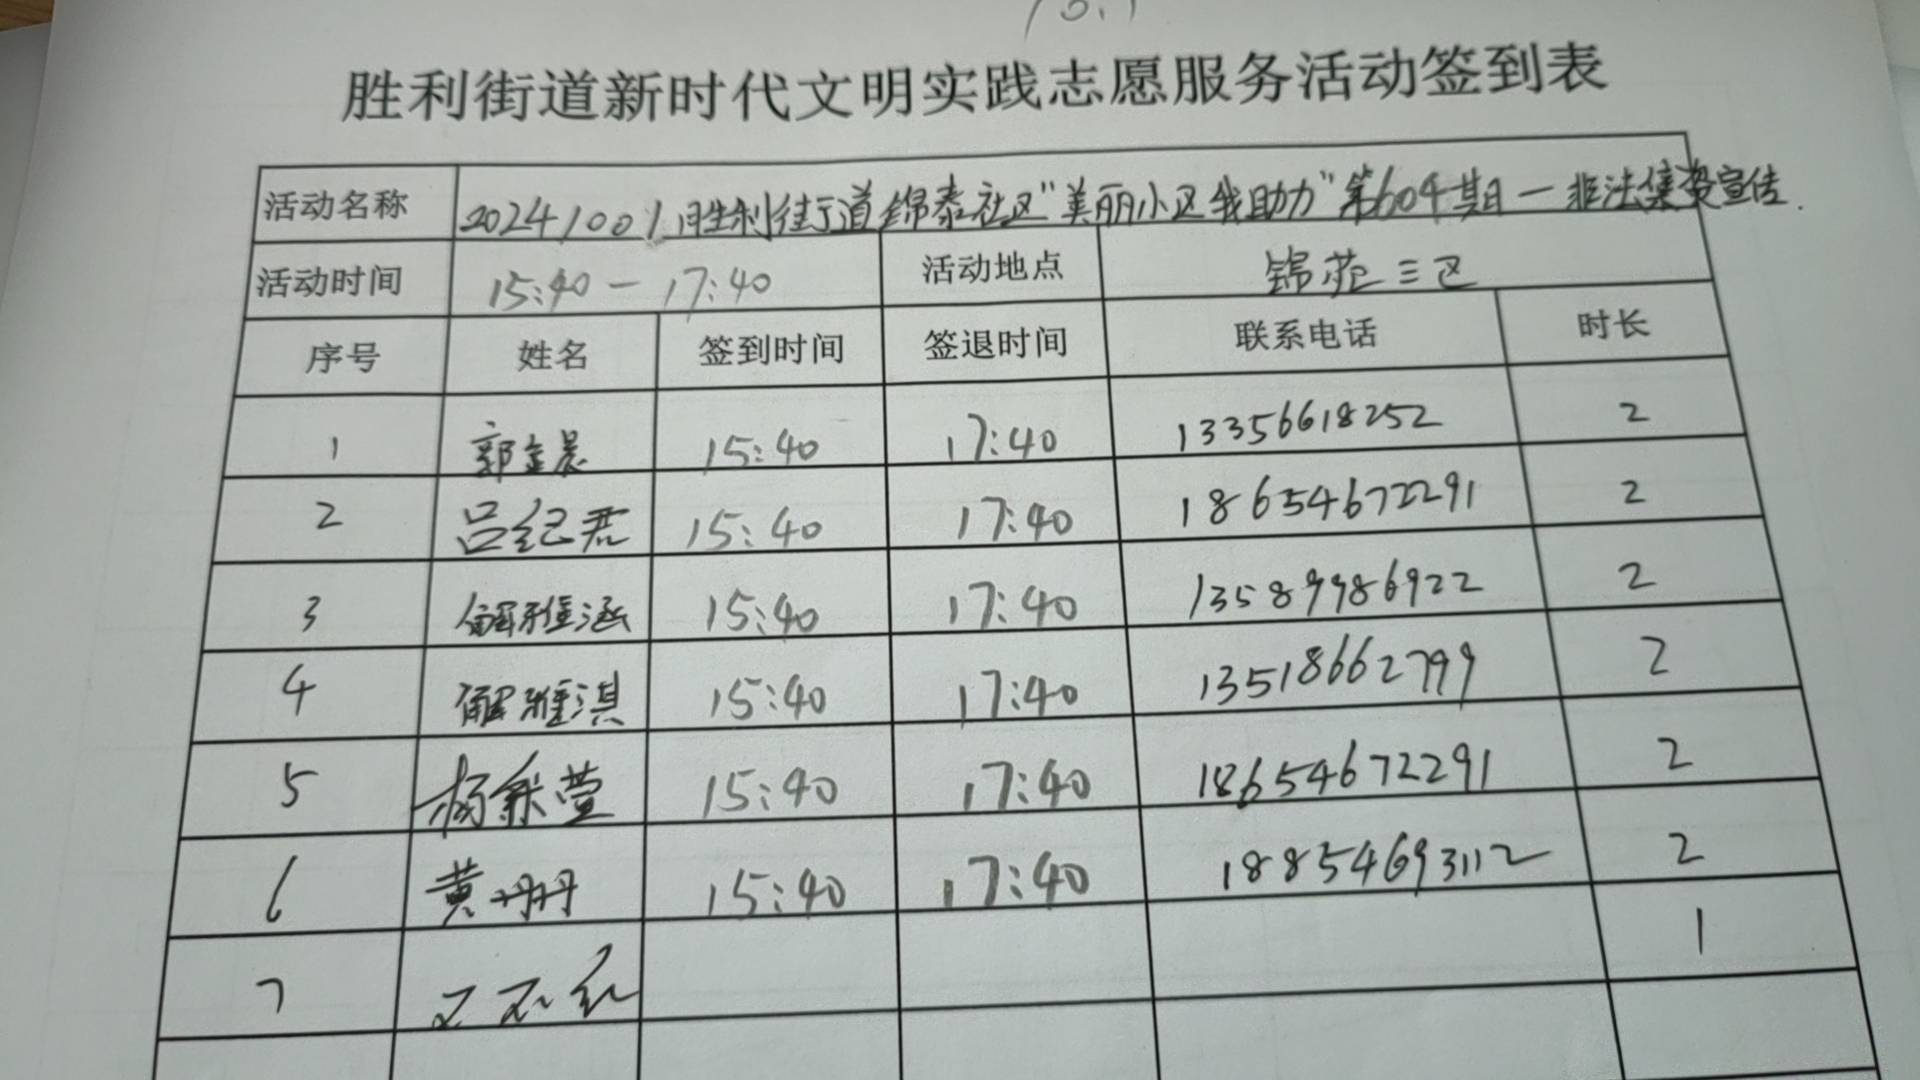 胜利街道新时代文明实践志愿服务活动签到表
活动名称 20241001胜利街道锦泰社区“美丽小区我助力”第604期—非法集资宣传.
活动时间 15:40－17:40 活动地点 锦苑三区
序号 姓名 签到时间 签退时间 联系电话 时长
1 郭 15:40 17:40 13356618252 2
2 吕纪君 15:40 17:40 18654672291 2
3 解雅涵 15:40 17:40 13589986922 2
4 解雅淇 15:40 17:40 13518662799 2
5 杨采萱 15:40 17:40 18654672291 2
6 黄丹丹 15:40 17:40 18854693112 2
7 1